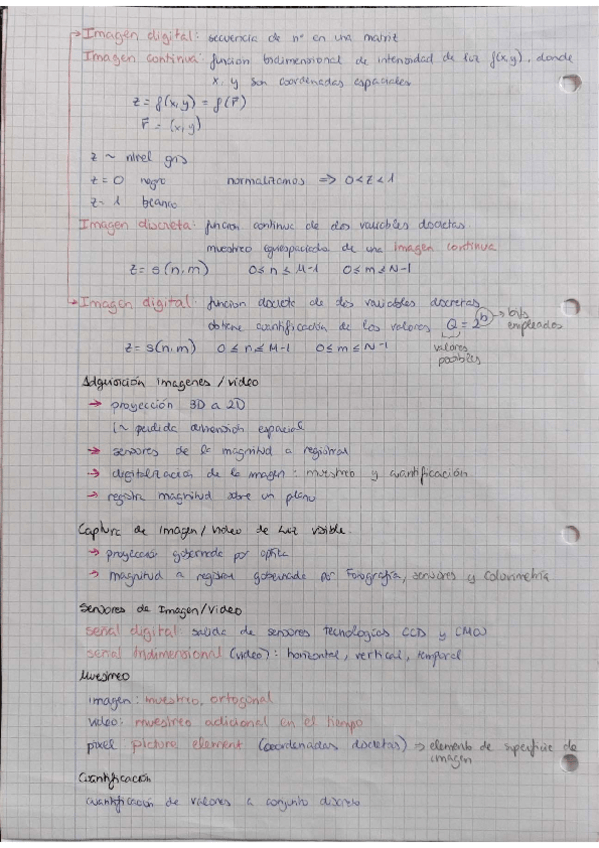 Imagen digital: secuencia de nº en una matriz
Imagen continua: funcion bidimensional de intensidad de luz f(x,y), donde
x, y son coordenadas espaciales
z = f(x,y) = f(r⃗)
r⃗ = (x,y)
z ~ nivel gris
z = 0 negro normalizamos => 0<z<1
z = 1 blanco
Imagen discreta: funcion continua de dos variables discretas
muestreo equiespaciado de una imagen continua
z = s(n,m) 0≤n≤M-1 0≤m≤N-1
Imagen digital: funcion discreta de dos variables discretas
obtiene cuantificación de los valores Q = 2^b → bits empleados
z = s(n,m) 0≤n≤M-1 0≤m≤N-1 valores posibles
Adquisición imagenes / video
→ proyección 3D a 2D
↳ perdida dimensión espacial
→ sensores de la magnitud a registrar
→ digitalización de la imagen: muestreo y cuantificación
→ registra magnitud sobre un plano
Captura de imagen/video de luz visible
→ proyección gobernada por optica
→ magnitud a registrar gobernada por Fotografía, sensores y colorimetría
Sensores de Imagen/video
señal digital salida de sensores Tecnologías CCD y CMOS
señal tridimensional (video): horizontal, vertical, temporal
Muestreo
imagen: muestreo ortogonal
video: muestreo adicional en el tiempo
pixel picture element (coordenadas discretas) → elemento de superficie de
imagen
Cuantificación
cuantificación de valores a conjunto discreto